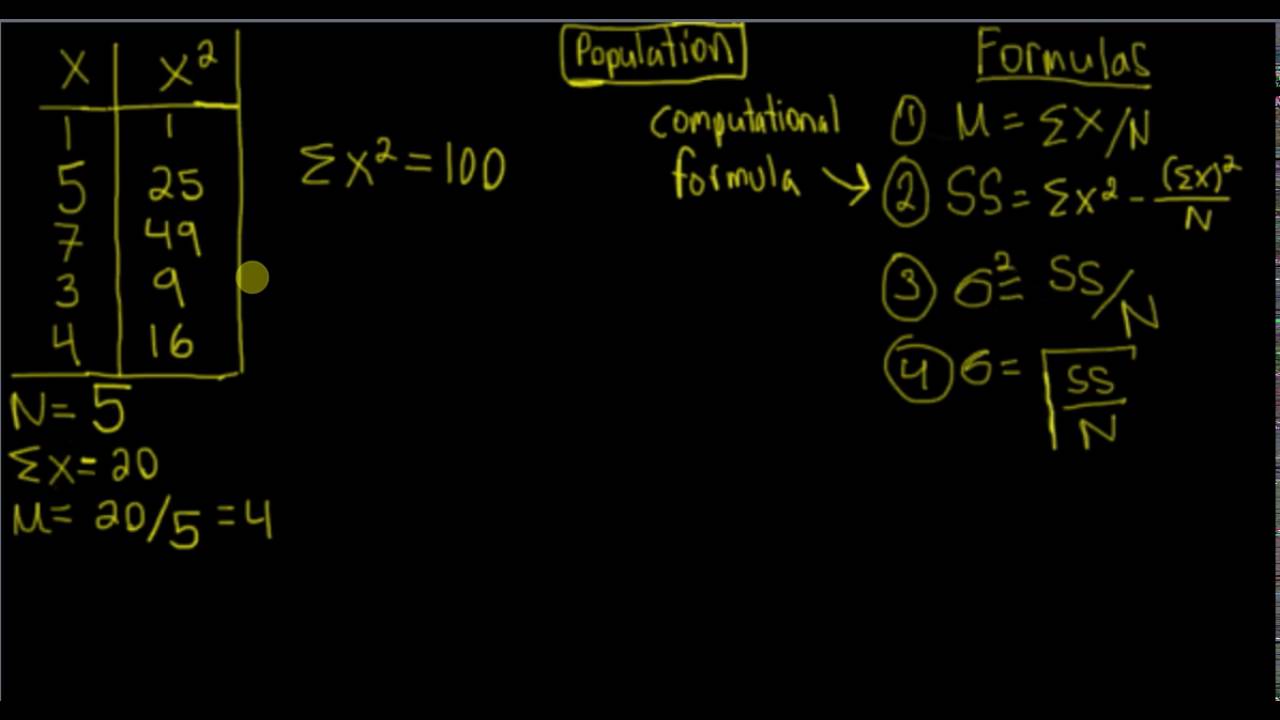 X X²
1 1
5 25
7 49
3 9
4 16
N = 5
Σx = 20
M = 20/5 = 4
Σx² = 100
Population
computational
formula →
Formulas
① M = ΣX/N
② SS = Σx² - (Σx)²/N
③ σ² = SS/N
④ σ = √SS/N